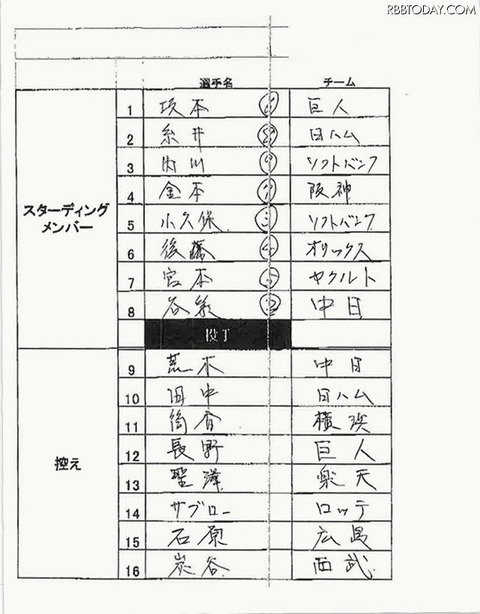 RBBTODAY.COM
選手名 チーム
スターティングメンバー
1 坂本 ⑥ 巨人
2 糸井 ⑧ 日ハム
3 内川 ⑨ ソフトバンク
4 金本 ⑦ 阪神
5 小久保 ③ ソフトバンク
6 後藤 ④ オリックス
7 宮本 ⑤ ヤクルト
8 谷繁 ② 中日
投手
控え
9 荒木 中日
10 田中 日ハム
11 筒香 横浜
12 長野 巨人
13 聖澤 楽天
14 サブロー ロッテ
15 石原 広島
16 炭谷 西武